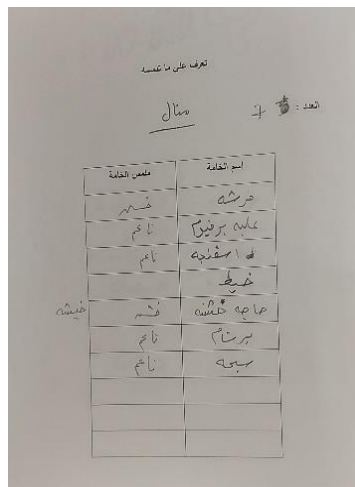 تعرف على ما تلمسه
العدد : 7
منال
اسم الخامة ملمس الخامة
فرشه خشن
علبه برفيوم ناعم
اسفنجه ناعم
خيط
حاجه خشنه خشنه خيشه
برشام ناعم
سبحه ناعم